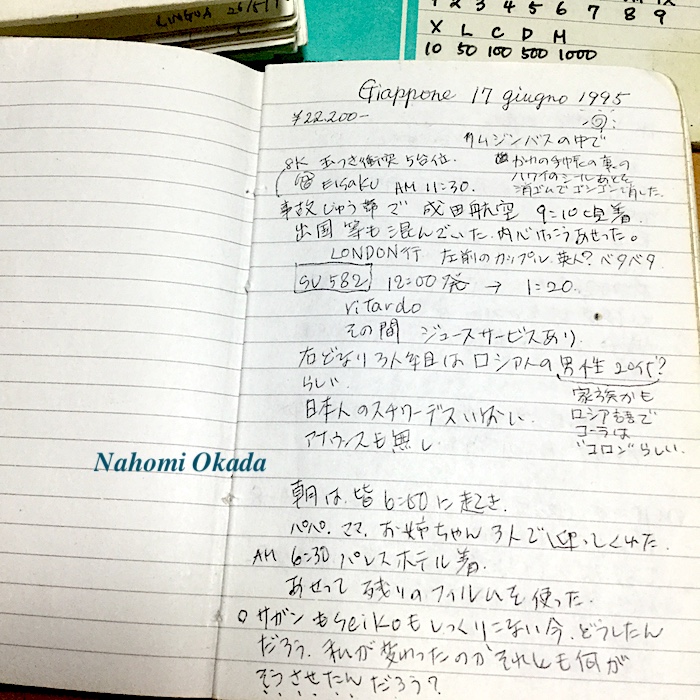 LINGUA 26/5/
1 2 3 4 5 6 7 8 9
X L C D M
10 50 100 500 1000
Giappone 17 giugno 1995
¥22,200-
リムジンバスの中で
8K 玉つき衝突 5台位.
EISAKU AM 11:30.
ハワイのシールあとを
消ゴムでゴシゴシ消した.
事故じゅう帯で 成田航空 9:10頃着.
出国 等も混んでいた. 内心けっこうあせった。
LONDON行 左前のカップル. 英人? ベタベタ
SU 582 12:00発 → 1:20.
ritardo
その間 ジュースサービスあり
右どなり3人年目は ロシア人の男性 20代?
らしい.
家族かも
日本人のスチワーデスいない.
ロシア語で
コーラは
アナウンスも無し
"コロン"らしい.
Nahomi Okada
朝は. 皆 6:00に起き.
パパ. ママ. お姉ちゃん 3人で迎してくれた.
AM 6:30 パレスホテル着.
あせって 残りのフィルムを使った.
○ サガンもSeikoもしっくりこない今. どうしたん
だろう. 私が変わったのかそれにも何が
そうさせたんだろう?